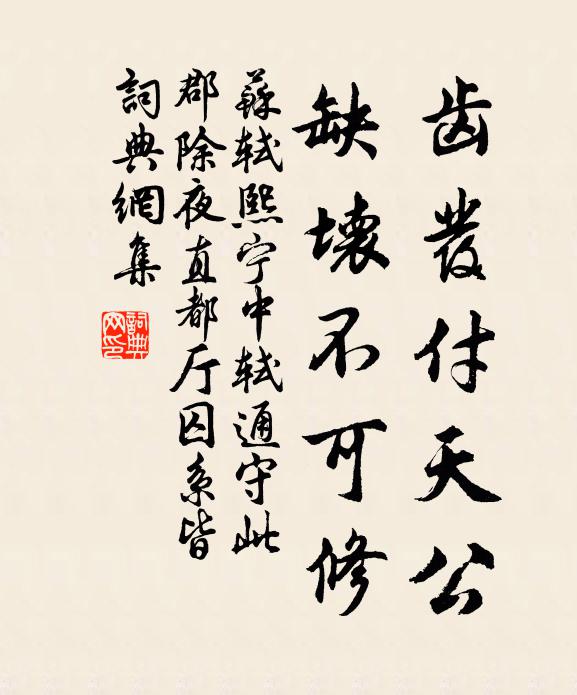 齿发付天公
缺壞不可修
蘇軾熙宁中軾通守此
郡除夜直都厅囚系皆
詞典網集
詞典網印